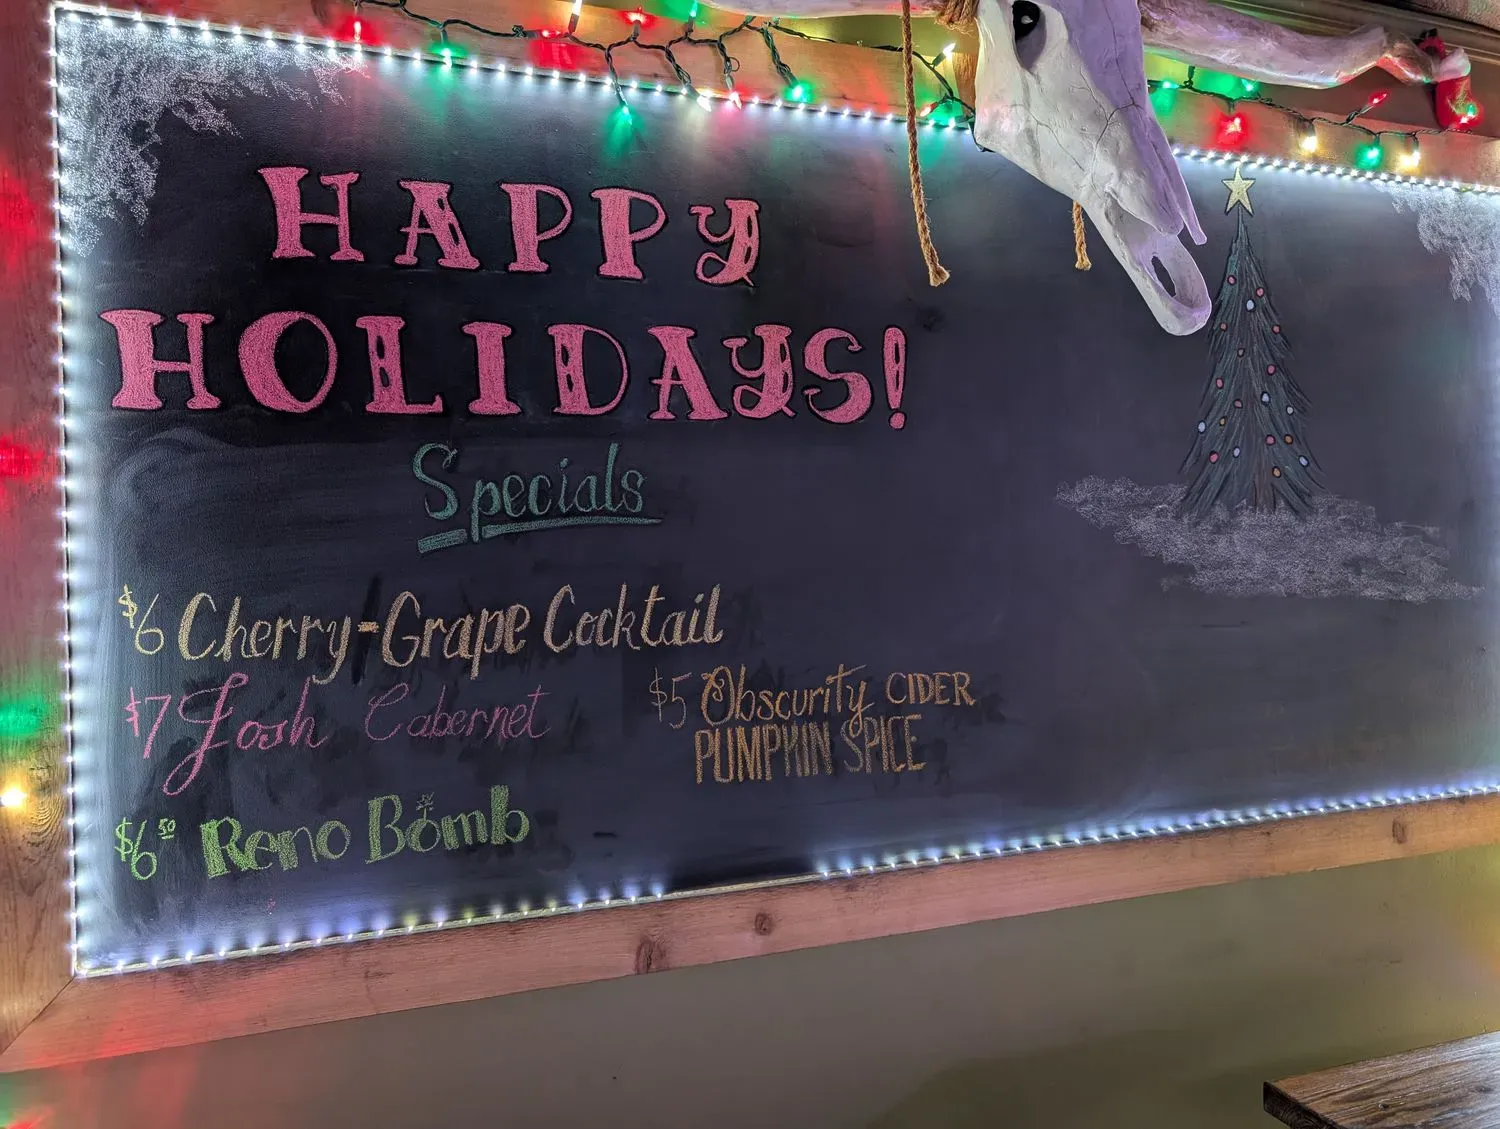 HAPPY
HOLIDAYS!
Specials
$6 Cherry-Grape Cocktail
$7 Josh Cabernet
$5 Obscurity CIDER
PUMPKIN SPICE
$6 50 Reno Bomb